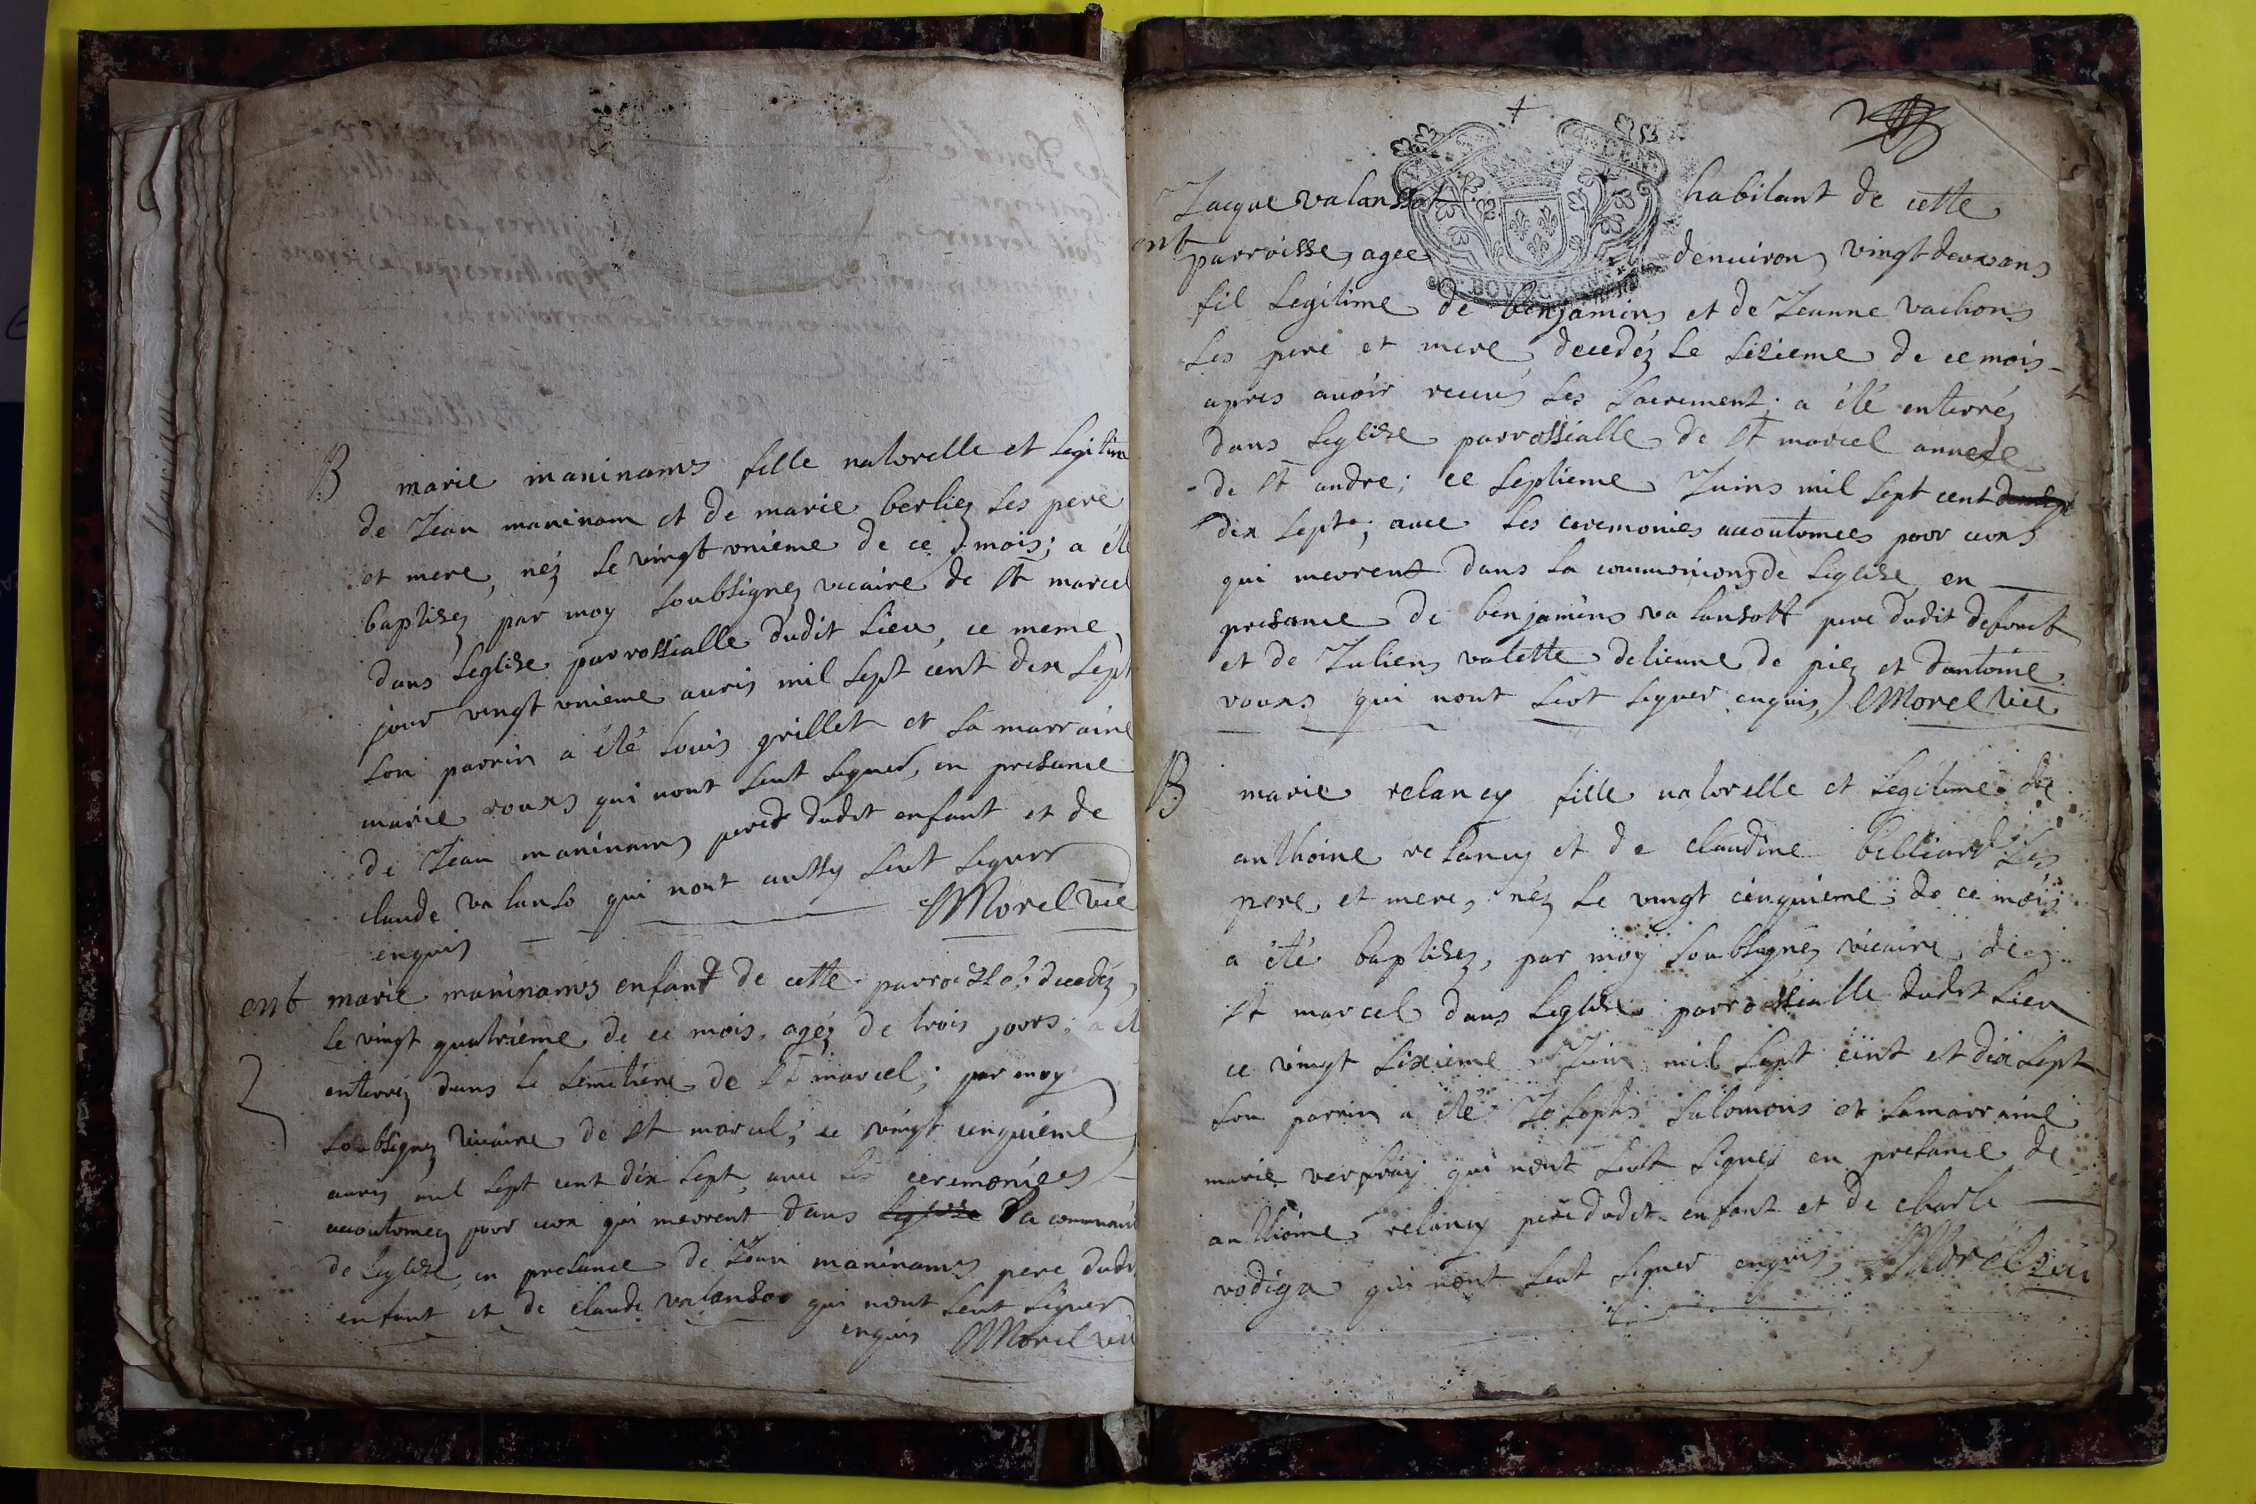 B marie maninams fille natorelle et legitim
de Jean maninam et de marie berliez ses pere
et mere, néz le vingt vnieme de ce mois; a été
baptisez par moy soubsignez vicaire de st marcel
dans leglise parrossialle dudit lieu, ce meme
jour vingt vnieme auris mil sept cent dix sept
son parrin a été louis grillet et sa marraine
marie rouxs qui nont seut signer, en presance
de Jean maninams pere dudit enfant et de
claude valanso qui nont aussy seut signer
enquis Morel vic
ent marie maninams enfant de cette parroisse decedéz
le vingt quatrieme de ce mois, agéz de trois jours; a ét
enterréz dans le semetiere de st marcel; par moy
soubsignez vicaire de st marcel; ce vingt cinquieme
auris mil sept cent dix sept, auec les ceremonies
accoutomez pour ceox qui meurent dans leglise la communi
de leglise, en presance de Jean maninams pere dudit
enfant et de claude valansoo qui nont seut signer
enquis Morel vic
Jacque valansot habitant de cette
ent
parroisse, agee denuiron vingt deuxans
fil legitime de benjamins et de Jeanne vachons
ses pere et mere, decedéz le sizieme de ce mois
apres auoir receus les sacrement; a été enterréz
dans leglise parrossialle de st marcel annexe
de st andre; ce septieme Juins mil sept cent
dix sept; auec les ceremonies accoutomees pour ceoxs
qui meurent dans la commonions de leglise en
presance de benjamins valansott pere dudit defonct
et de Juliens valette delienne de piez et dantoine
rouxs qui nont seot signer enquis, Morel vic
BOVRGOGNE
B marie relancy fille natorelle et legitime de
anthoine relancy et de claudine billiard ses
pere et mere, néz le vingt cinquieme de ce mois
a été baptisez, par moy soubsignés vicaire de
st marcel dans leglise parrossialle dudit lieu
ce vingt sixieme Juin mil sept cent et dix sept
son parrin a été Josephs salomons et samarraine
marie verpray qui nont seut signer en presance de
anthoine relancy pere dudit enfant et de charle
vodiga qui nont seut signer enquis, Morel vic